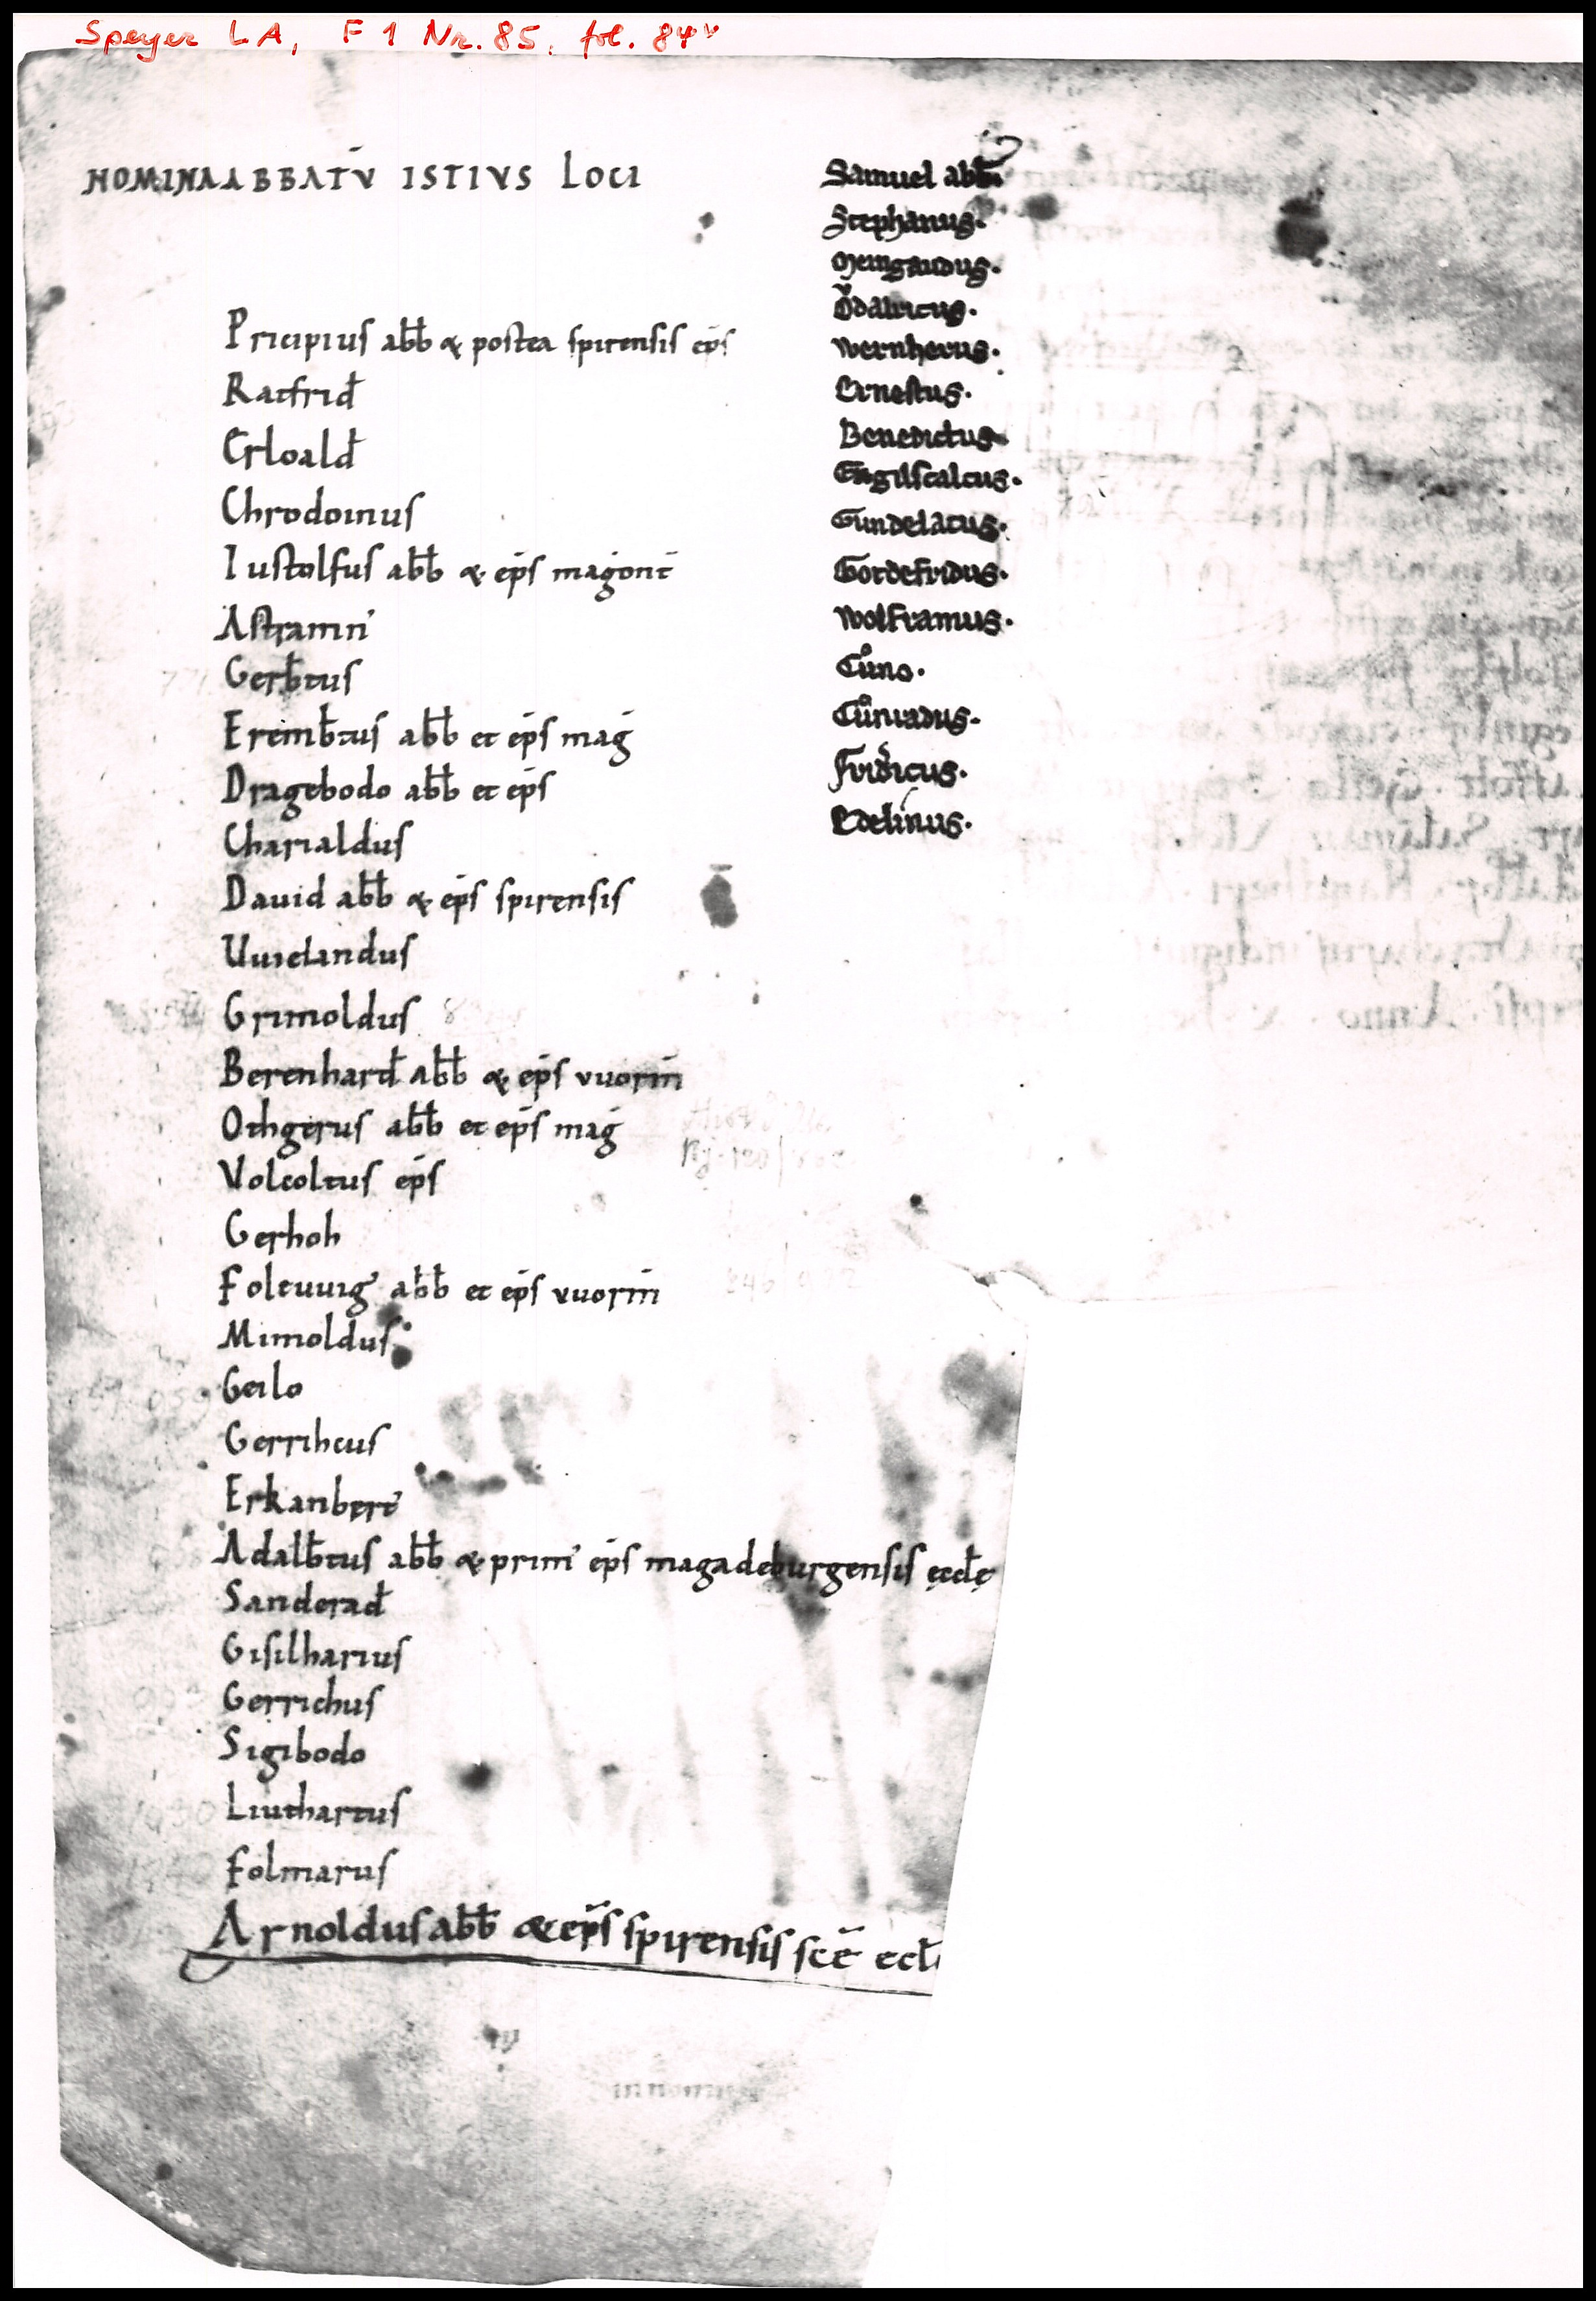 Speyer LA, F 1 Nr. 85, fol. 84v
NOMINA ABBATŪ ISTIVS LOCI
Pricipius abƀ & postea spirensis ep̄s
Ratfrid̄
Erloald̄
Chrodoinus
Iustolfus abƀ & ep̄s magont̄
Astramn᾿
Gerƀtus
Eremƀtus abƀ et ep̄s maḡ
Dragebodo abƀ et ep̄s
Charialdus
Dauid abƀ & ep̄s spirensis
Uuielandus
Grimoldus
Berenhard̄ abƀ & ep̄s vuorm̄
Othgerus abƀ et ep̄s maḡ
Volcoltus ep̄s
Gerhoh
Folcuuig᾿ abƀ et ep̄s vuorm̄
Mimoldus
Geilo
Gerrihcus
Erkanbert᾿
Adalƀtus abƀ & prim᾿ ep̄s magadeburgensis ęcclę
Sanderad̄
Gisilharius
Gerrichus
Sigibodo
Liuthartus
Folmarus
Arnoldus abƀ & ep̄s spirensis scē eccl
Samuel abb
Stephanus.
Meingaudus.
Ǒdalricus.
Wernherus.
Ernestus.
Benedictus
Engilscalcus.
Gundelacus.
Gotdefridus.
Wolframus.
Cůno.
Cůnradus.
Fridicus.
Edelinus.